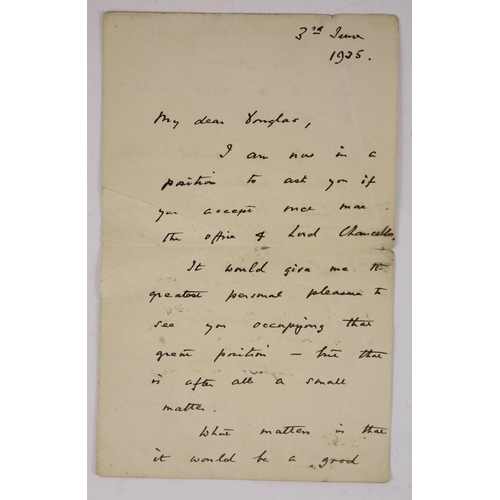 3rd June
1935.
My dear Douglas,
I am now in a
position to ask you if
you accept once more
the office of Lord Chancellor.
It would give me the
greatest personal pleasure to
see you occupying that
great position – but that
is after all a small
matter.
What matters is that
it would be a good